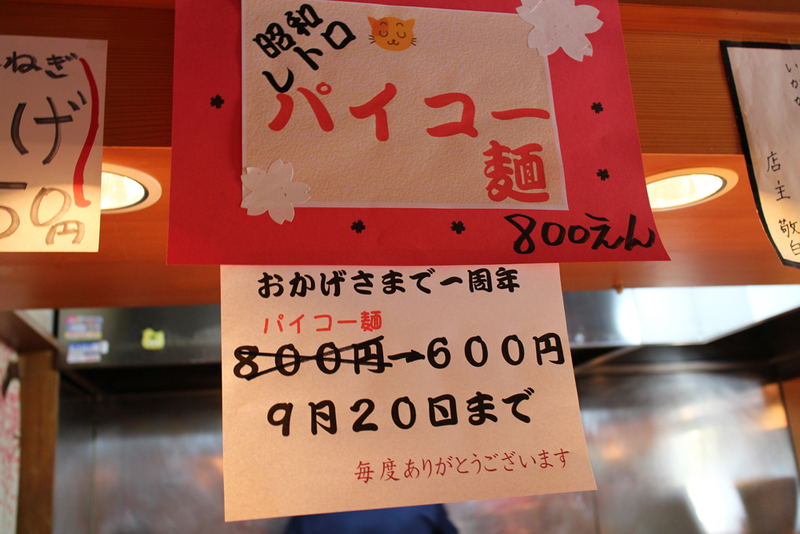 ねぎ
げ
50円
昭和
レトロ
パイコー
麺
800えん
おかげさまで一周年
パイコー麺
800円→600円
9月20日まで
毎度ありがとうございます
店主
敬白